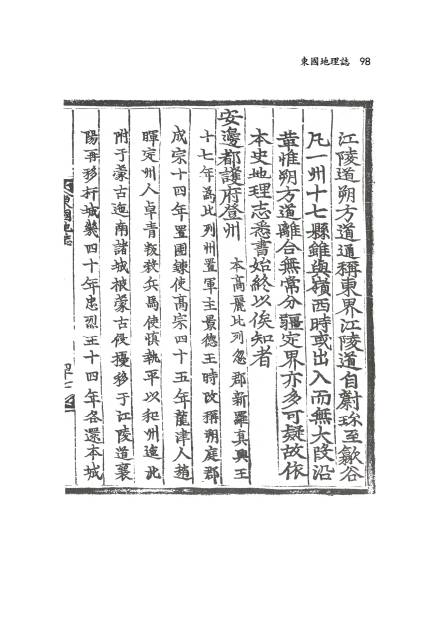 東國地理誌 98
江陵道朔方道通稱東界江陵道自蔚珎至歙谷
凡一州十七縣雖與嶺西時或出入而無大段沿
革惟朔方道離合無常分疆定界亦多可疑故依
本史地理志悉書始終以俟知者
安邊都護府登州 本高麗比列忽郡新羅真興王
十七年爲比列州置軍主景德王時改稱朔庭郡
成宗十四年置團鍊使高宗四十五年龍津人趙
暉定州人卓青叛殺兵馬使愼執平以和州迤北
附于蒙古迤南諸城被蒙古侵擾移于江陵道襄
陽再移扞城幾四十年忠烈王十四年各還本城